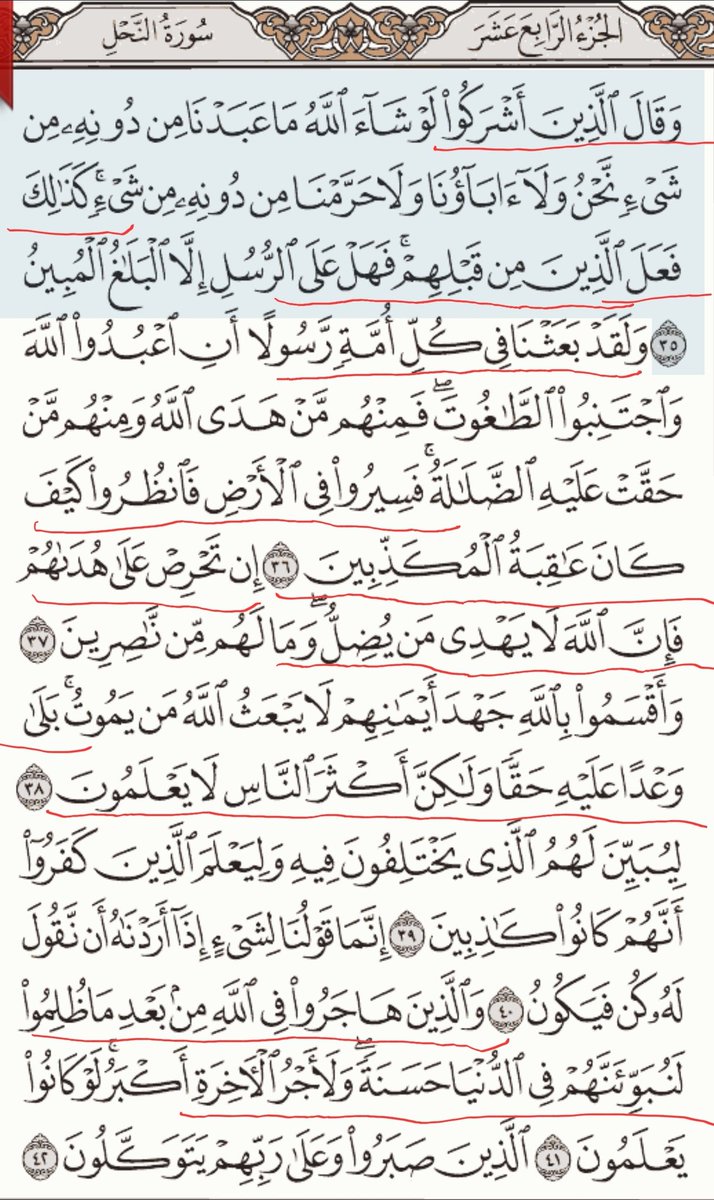 الجزء الرابع عشر
سورة النحل
وَقَالَ ٱلَّذِينَ أَشْرَكُوا۟ لَوْ شَآءَ ٱللَّهُ مَا عَبَدْنَا مِن دُونِهِۦ مِن
شَىْءٍ نَّحْنُ وَلَآ ءَابَآؤُنَا وَلَا حَرَّمْنَا مِن دُونِهِۦ مِن شَىْءٍ ۚ كَذَٰلِكَ
فَعَلَ ٱلَّذِينَ مِن قَبْلِهِمْ ۚ فَهَلْ عَلَى ٱلرُّسُلِ إِلَّا ٱلْبَلَٰغُ ٱلْمُبِينُ
٣٥ وَلَقَدْ بَعَثْنَا فِى كُلِّ أُمَّةٍ رَّسُولًا أَنِ ٱعْبُدُوا۟ ٱللَّهَ
وَٱجْتَنِبُوا۟ ٱلطَّٰغُوتَ ۖ فَمِنْهُم مَّنْ هَدَى ٱللَّهُ وَمِنْهُم مَّنْ
حَقَّتْ عَلَيْهِ ٱلضَّلَٰلَةُ ۚ فَسِيرُوا۟ فِى ٱلْأَرْضِ فَٱنظُرُوا۟ كَيْفَ
كَانَ عَٰقِبَةُ ٱلْمُكَذِّبِينَ ٣٦ إِن تَحْرِصْ عَلَىٰ هُدَىٰهُمْ
فَإِنَّ ٱللَّهَ لَا يَهْدِى مَن يُضِلُّ ۖ وَمَا لَهُم مِّن نَّٰصِرِينَ ٣٧
وَأَقْسَمُوا۟ بِٱللَّهِ جَهْدَ أَيْمَٰنِهِمْ لَا يَبْعَثُ ٱللَّهُ مَن يَمُوتُ ۚ بَلَىٰ
وَعْدًا عَلَيْهِ حَقًّا وَلَٰكِنَّ أَكْثَرَ ٱلنَّاسِ لَا يَعْلَمُونَ ٣٨
لِيُبَيِّنَ لَهُمُ ٱلَّذِى يَخْتَلِفُونَ فِيهِ وَلِيَعْلَمَ ٱلَّذِينَ كَفَرُوٓا۟
أَنَّهُمْ كَانُوا۟ كَٰذِبِينَ ٣٩ إِنَّمَا قَوْلُنَا لِشَىْءٍ إِذَآ أَرَدْنَٰهُ أَن نَّقُولَ
لَهُۥ كُن فَيَكُونُ ٤٠ وَٱلَّذِينَ هَاجَرُوا۟ فِى ٱللَّهِ مِنۢ بَعْدِ مَا ظُلِمُوا۟
لَنُبَوِّئَنَّهُمْ فِى ٱلدُّنْيَا حَسَنَةً ۖ وَلَأَجْرُ ٱلْءَاخِرَةِ أَكْبَرُ ۚ لَوْ كَانُوا۟
يَعْلَمُونَ ٤١ ٱلَّذِينَ صَبَرُوا۟ وَعَلَىٰ رَبِّهِمْ يَتَوَكَّلُونَ ٤٢